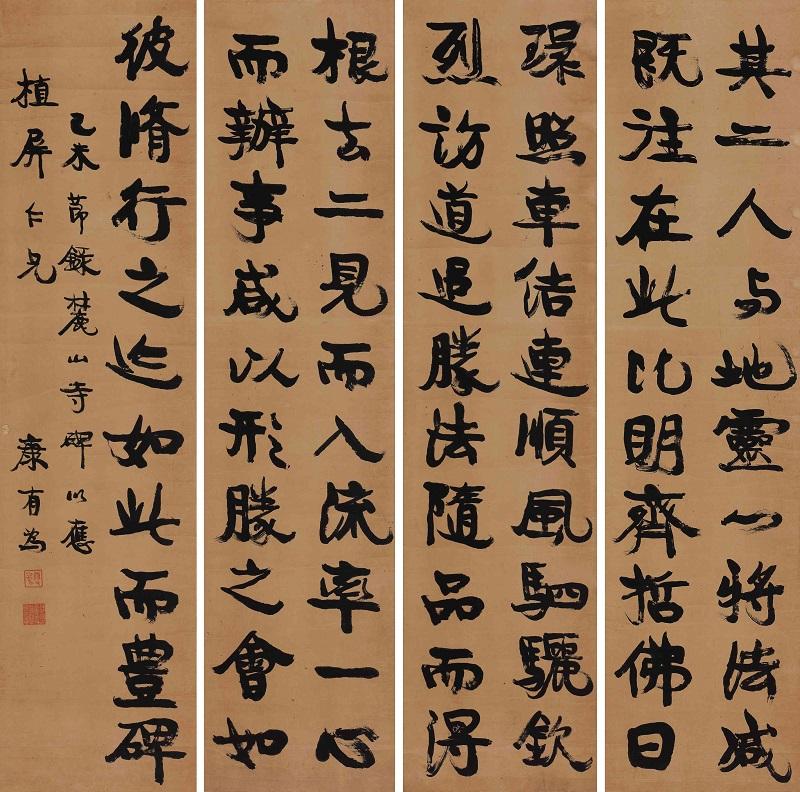 其二人与地靈心將法滅
既注在此比明齊哲佛日
環照車佶連順風駟驪欽
烈訪道追勝法隨品而得
根去二見而入流率一心
而辦事咸以形勝之會如
彼脩行之迹如此而豊碑
乙未節錄麓山寺碑以應
植屏仁兄 康有為